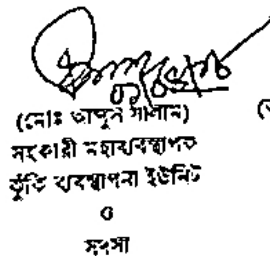 (মোঃ আব্দুস সালাম)
সহকারী মহাব্যবস্থাপক
ঝুঁকি ব্যবস্থাপনা ইউনিট
ও
সদস্য